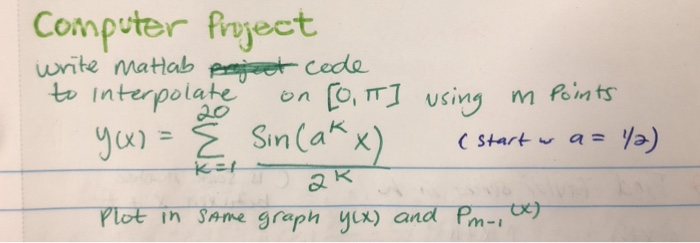 Computer Project
write Matlab code
to interpolate on [0, π] using m Points
y(x) = 20 Σ k=1 Sin(a^k x) / 2^k (start w a = 1/2)
Plot in SAME graph y(x) and P_{m-1}(x)